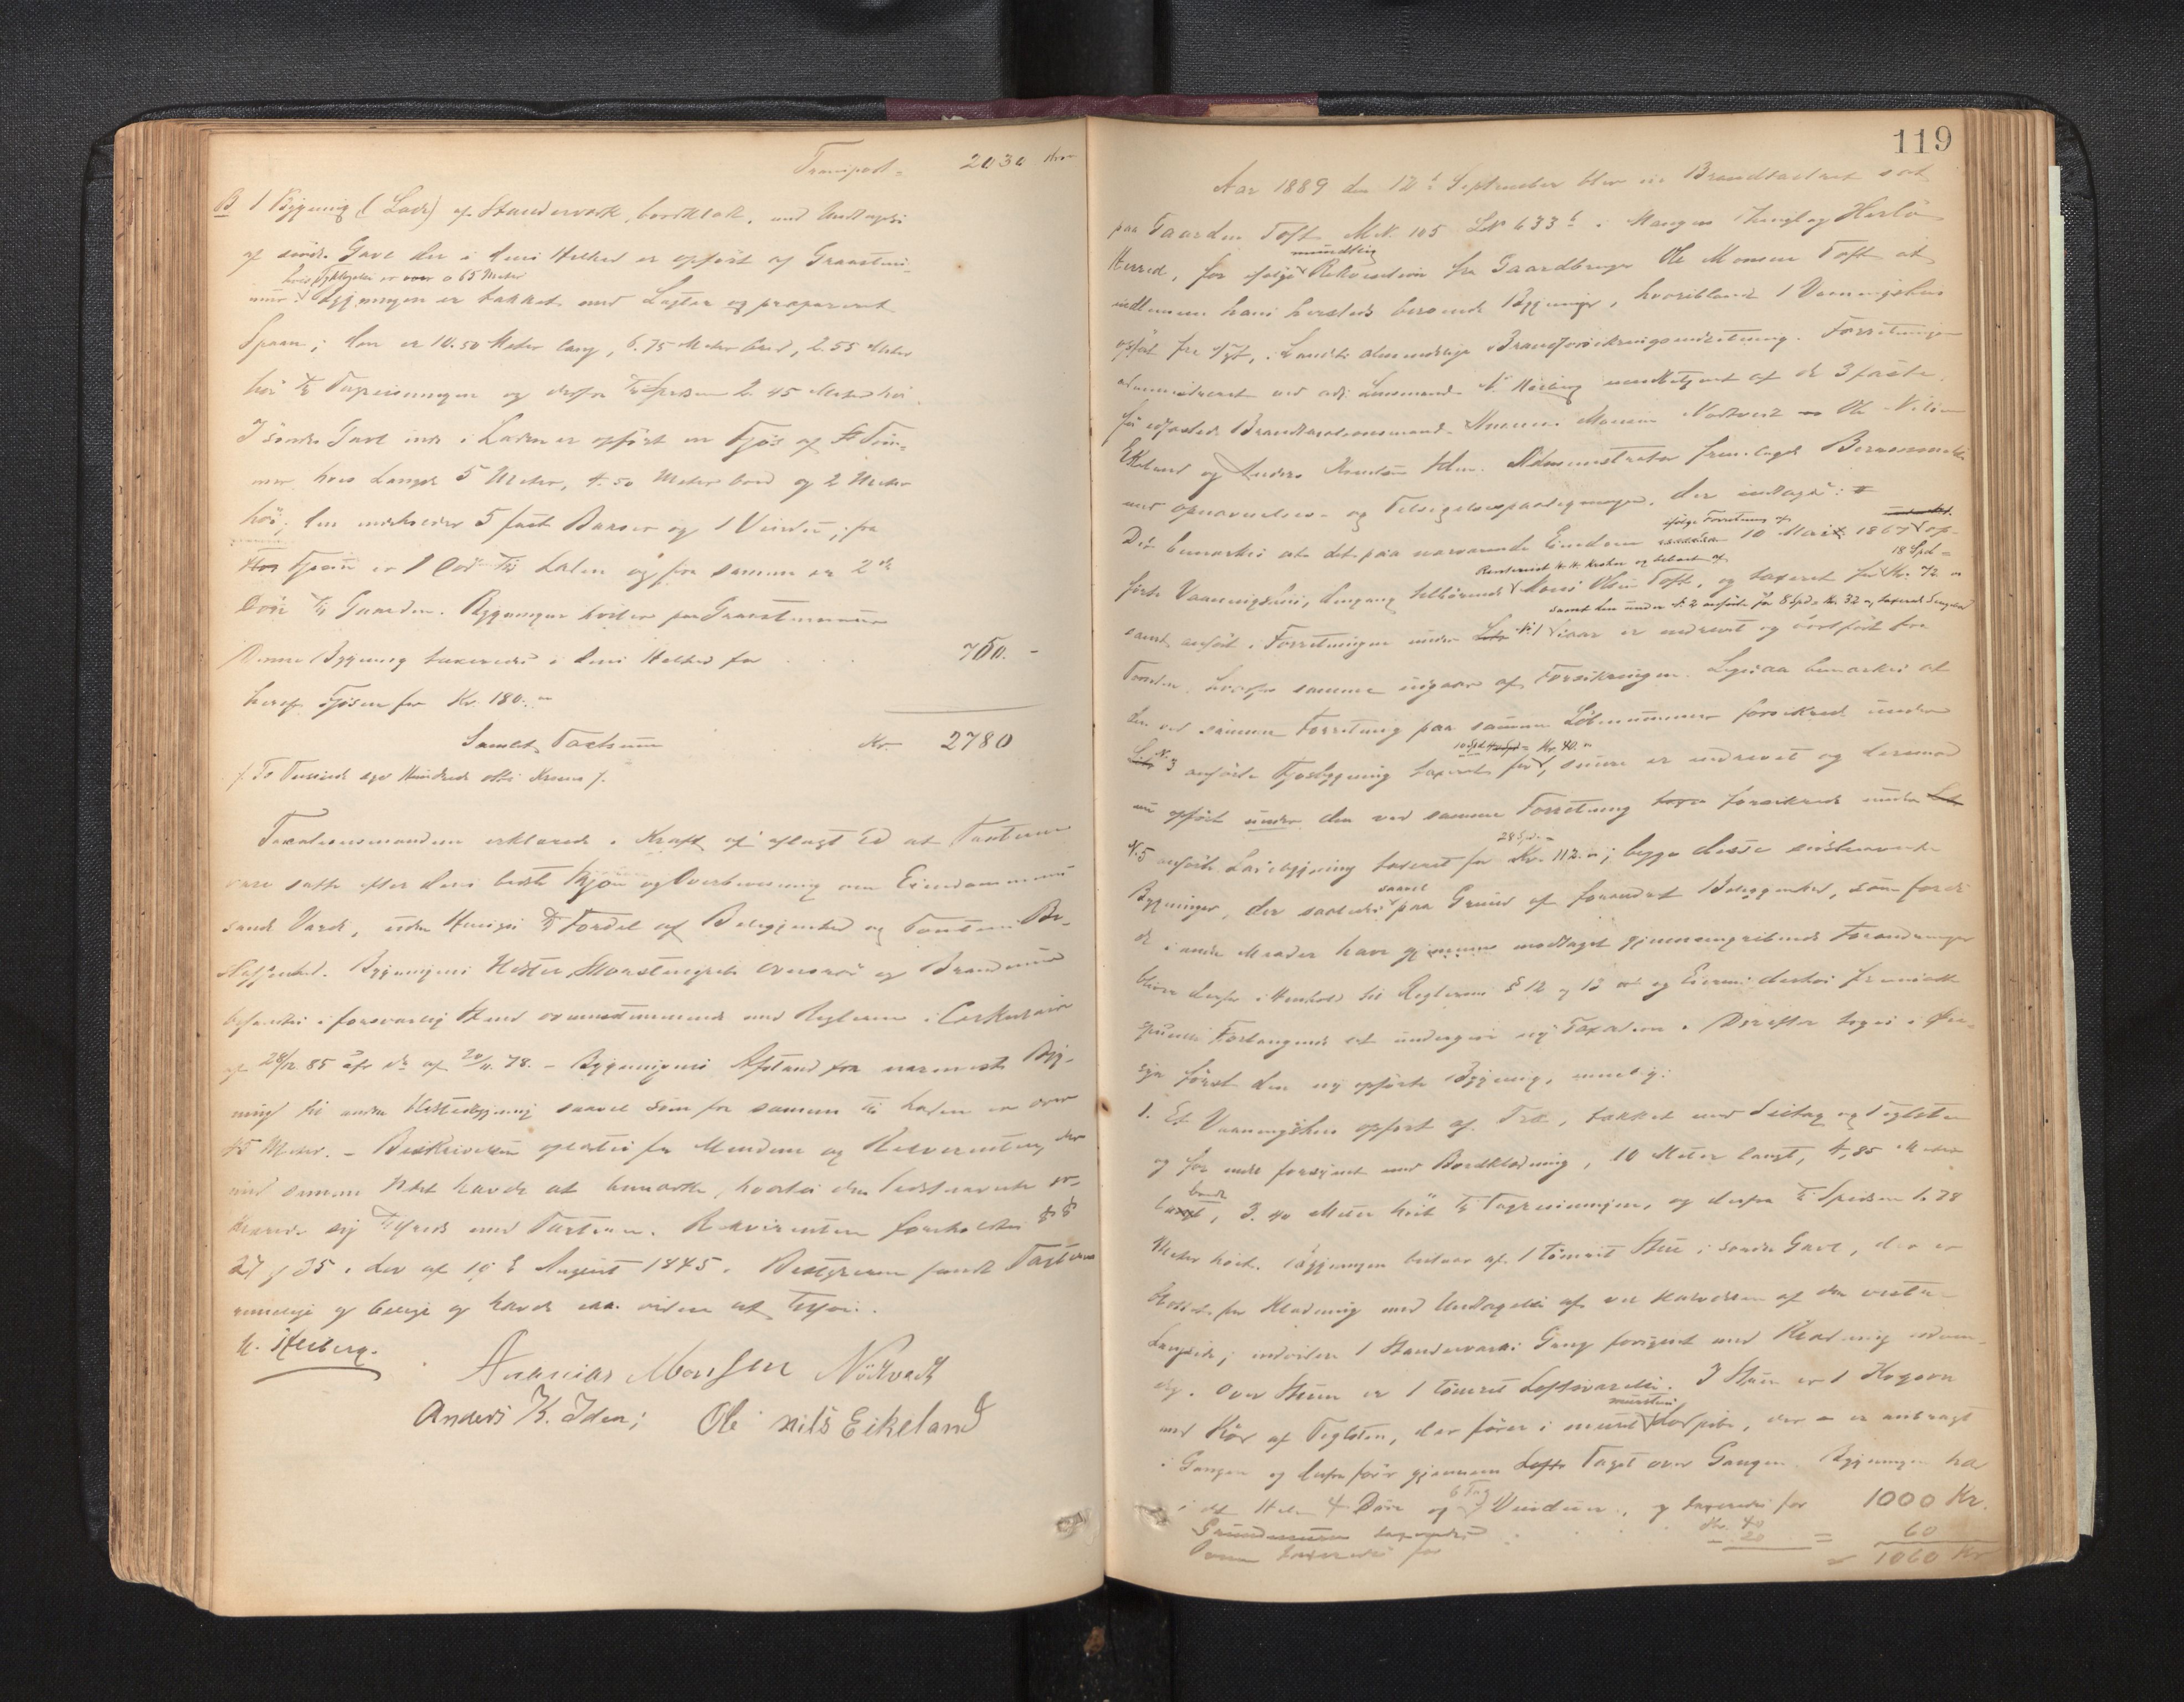 Transport = 2030 Kr
B 1 Bygning (Lade) af Standerverk, bordklædt, med Undtagelse
af søndre Gavl der i dens Helhed er opført af Graasteins-
hvis Tykkelse er over 0.65 Meter
mur. Bygningen er tækket med Lægter og præpareret
Spaan; den er 10.50 Meter lang, 6.75 Meter bred, 2.55 Meter
høi til Tagreisningen og derfra til Spidsen 2.45 Meter høi.
I søndre Gavl inde i Laden er opført en Fjøs af Tøm-
mer, hvis Længde 5 Meter, 4.50 Meter bred og 2 Meter
høi; den indeholder 5 faste Baaser og 1 Vindu; fra
Fjøsen er 1 Dør til Laden og fra samme er 2de
Døre til Gaarden. Bygningen hviler paa Graasteinsmur
Denne Bygning taxeredes i dens Helhed for 750.-
heraf Fjøsen for Kr. 180.
Samlet Taxtsum Kr 2780
/. To Tusinde syv Hundrede otti Kroner /.
Taxationsmændene erklærede i Kraft af aflagt Ed at Taxterne
vare satte efter deres bedste Skjøn og Overbevisning om Eiendommenes
sande Værdi, uden Hensyn til Fordel af Beliggenhed og Tomtens Be-
skaffenhed. Bygningens Ildsteder, Skorstenspiber Ovnsrør og Brandmure
befandtes i forsvarlig Stand overensstemmende med Reglerne i Cirkulære
af 28/12 85 cfr do af 20/11. 78. – Bygningens Afstand fra nærmeste Byg-
ning til anden Ildstedsbygning saavel som fra samme til Laden er over
45 Meter. – Beskrivelsen oplæstes for Mændene og Rekvirenten, der
mod samme Intet havde at bemærke, hvorhos den sidstnævnte er-
klærede sig tilfreds med Taxterne. Rekvirenten foreholdtes §§
27 og 35 i Lov af 19de August 1845. Bestyreren fandt Taxterne
rimelige og billige og havde intet videre at tilføie.
N. Heiberg.
Ananias Monsen Nödtvedt
Anders K. Iden; Ole Nils Eikeland
119
Aar 1889 den 12te September blev en Brandtaxtret sat
paa Gaarden Toft M.N. 105 LN 633b i Mangers Thingl. og Herlø
mundtlig
Herred, for ifølge Rekvisition fra Gaardbruger Ole Monsen Toft at
indlemme hans hersteds beroende Bygninger, hvoriblandt 1 Vaaningshus
opført fra nyt, i Landets almindelige Brandforsikringsindretning. Forretningen
administreret ved adj. Lensmand N. Heiberg med Betjent af de 3 faste
for edfæstede Brandtaxationsmænd Ananias Monsen Nødtvedt Ole Nilsen
Eikeland og Anders Knudsen Iden. Administrator fremlagde Berammelse
med Opnævnelses- og Tilsigelsespaategninger, der indtages:
ifølge Forretning af
Det bemærkes at det paa nærværende Eiendom 10 Mai 1867 op-
18 Spd =
førte Vaaningshus, dengang tilhørende Mons Olsen Toft, og taxeret for Kr. 72
samt den under N. 2 anførte for 8 Spd. = Kr 32 taxerede
samt anført i Forretningen under N. 1 er nedrevet og bortført fra
Tomten, hvorfor samme udgaar af Forsikringen. Ligesaa bemærkes at
den ved samme Forretning paa samme Løbenummer forsikrede under
10 Spd = Kr. 40.
N. 3 anførte Fjøsbygning taxeret for, senere er nedrevet og derimod
nu opført under den ved samme Forretning forsikrede under
28 Spd. =
N. 5 anførte Ladebygning taxeret for Kr. 112; begge disse sidstnævnte
saavel
Bygninger, der saaledes paa Grund af forandret Beliggenhed, som fordi
de i andre Maader have modtaget gjennemgribende Forandringer
bliver derfor i Henhold til Reglernes § 12 og 13 og Eierens desfor fremsatte
specielle Forlangende at undergive ny Taxation. Derefter toges i Øie-
syn først den ny opførte Bygning, nemlig:
1. Et Vaaningshus opført af Træ, tækket med Sutag og Teglsten
og for endt forsynet med Bordklædning, 10 Meter langt, 4,85 Meter
bredt
, 3.40 Meter høit til Tagreisningen, og derfra til Spidsen 1.78
Meter høit. Bygningen bestaar af 1 tømret Stue i søndre Gavl, der er
blottet for Klædning med Undtagelse af ved Halvdelen af den vestre
Langside; endvidere 1 Standerværks Gang forsynet med Klædning udven-
dig. Over Stuen er 1 tømret Loftsværelse. I Stuen er 1 Kogeovn
murstens
med Rør af Teglsten, der fører i muret pibe, der er anbragt
i Gangen og derfra fører gjennem Taget over Gangen. Bygningen har
6 Fag
i det Hele 4 Døre og Vinduer, og taxeredes for 1000 Kr.
Grundmuren taxeredes Kr. 40
Ovnen taxeredes for - 20 = 60
1060 Kr